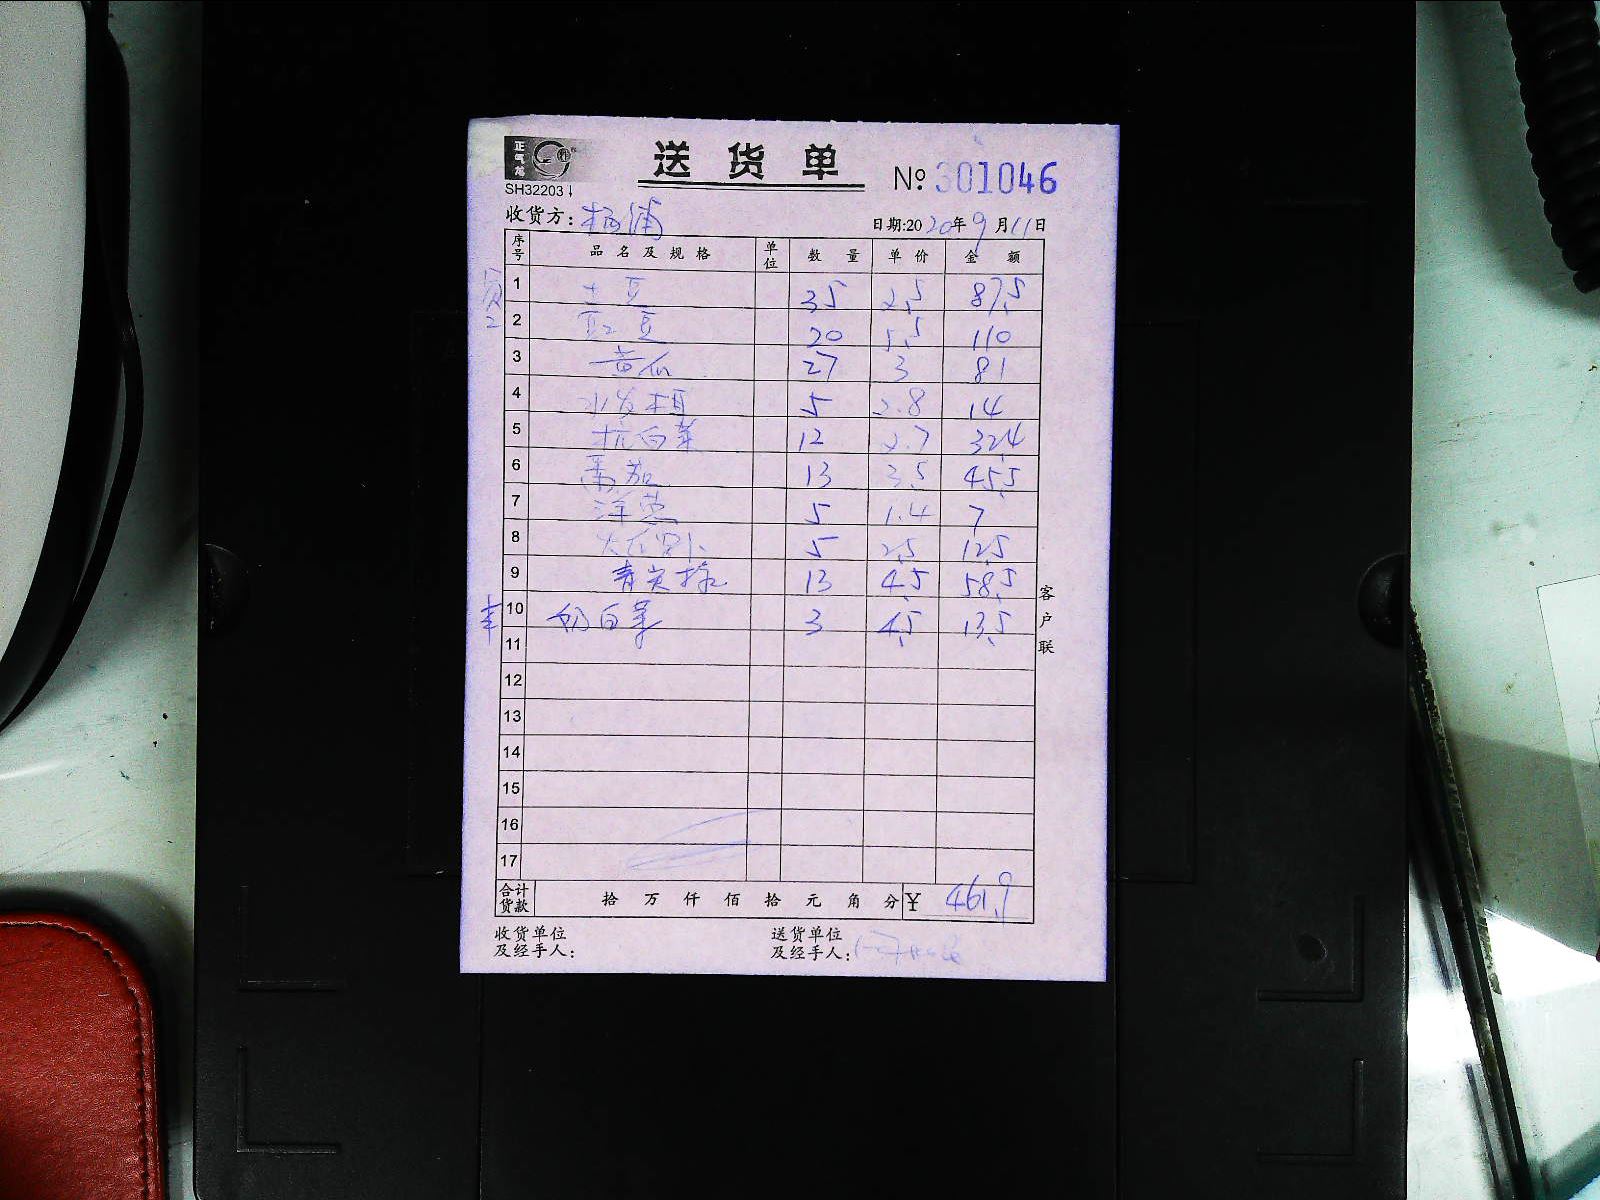 正气龙
送货单
№ 301046
SH32203
收货方: 杨浦
日期:2020年9月11日
序号 品名及规格 单位 数量 单价 金额
1 土豆 35 2.5 87.5
2 豇豆 20 5.5 110
3 黄瓜 27 3 81
4 水发木耳 5 2.8 14
5 杭白菜 12 2.7 32.4
6 番茄 13 3.5 45.5
7 洋葱 5 1.4 7
8 大红萝卜 5 2.5 12.5
9 青尖椒 13 4.5 58.5
10 奶白菜 3 4.5 13.5
11
12
13
14
15
16
17
客户联
合计货款 拾 万 仟 佰 拾 元 角 分 ¥ 461.9
收货单位及经手人:
送货单位及经手人: